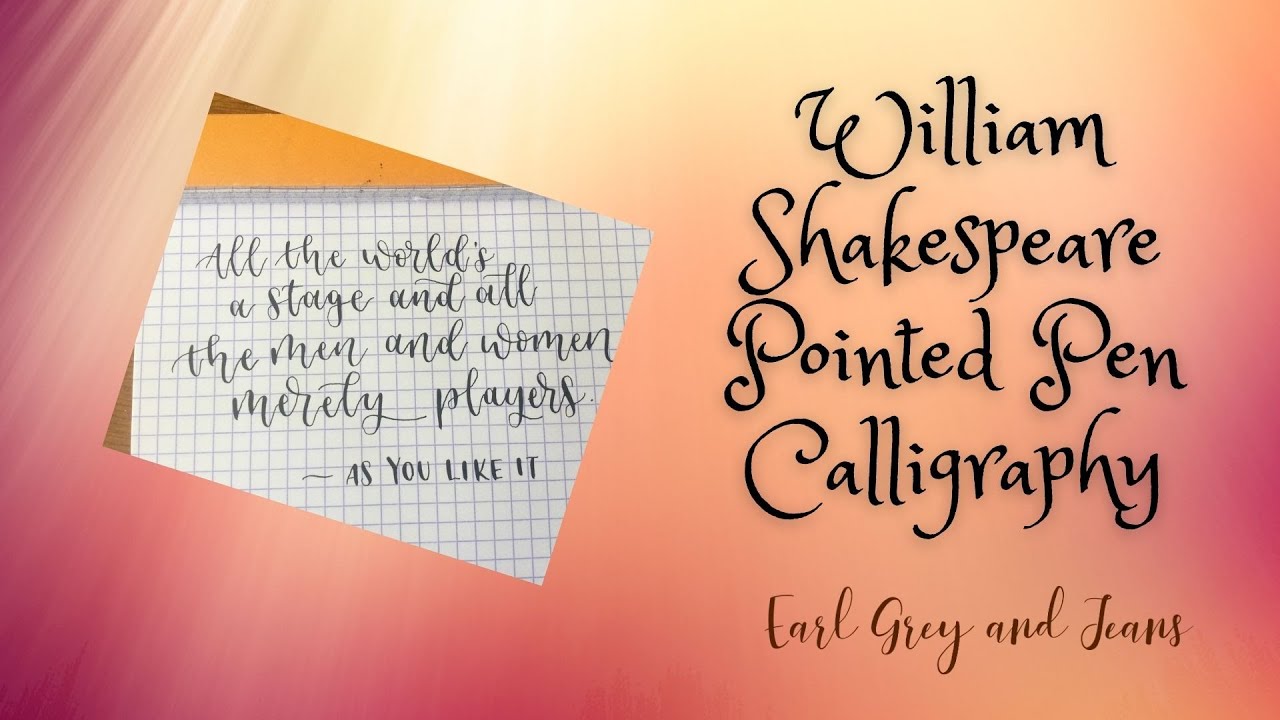 All the world's
a stage and all
the men and women
merely players.
~ AS YOU LIKE IT
William
Shakespeare
Pointed Pen
Calligraphy
Earl Grey and Jeans